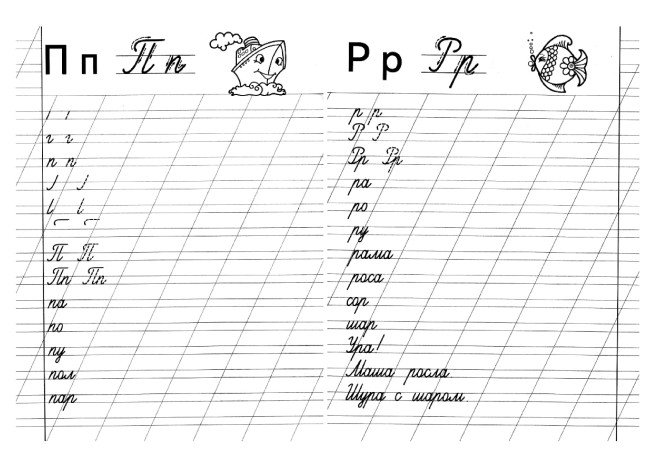 П п П п
г г
п п
П П
Пп Пп
па
по
пу
пол
пар
Р р Р р
р р
Р Р
Рр Рр
ра
ро
ру
рама
роса
сор
шар
Ура!
Маша росла.
Шура с шаром.